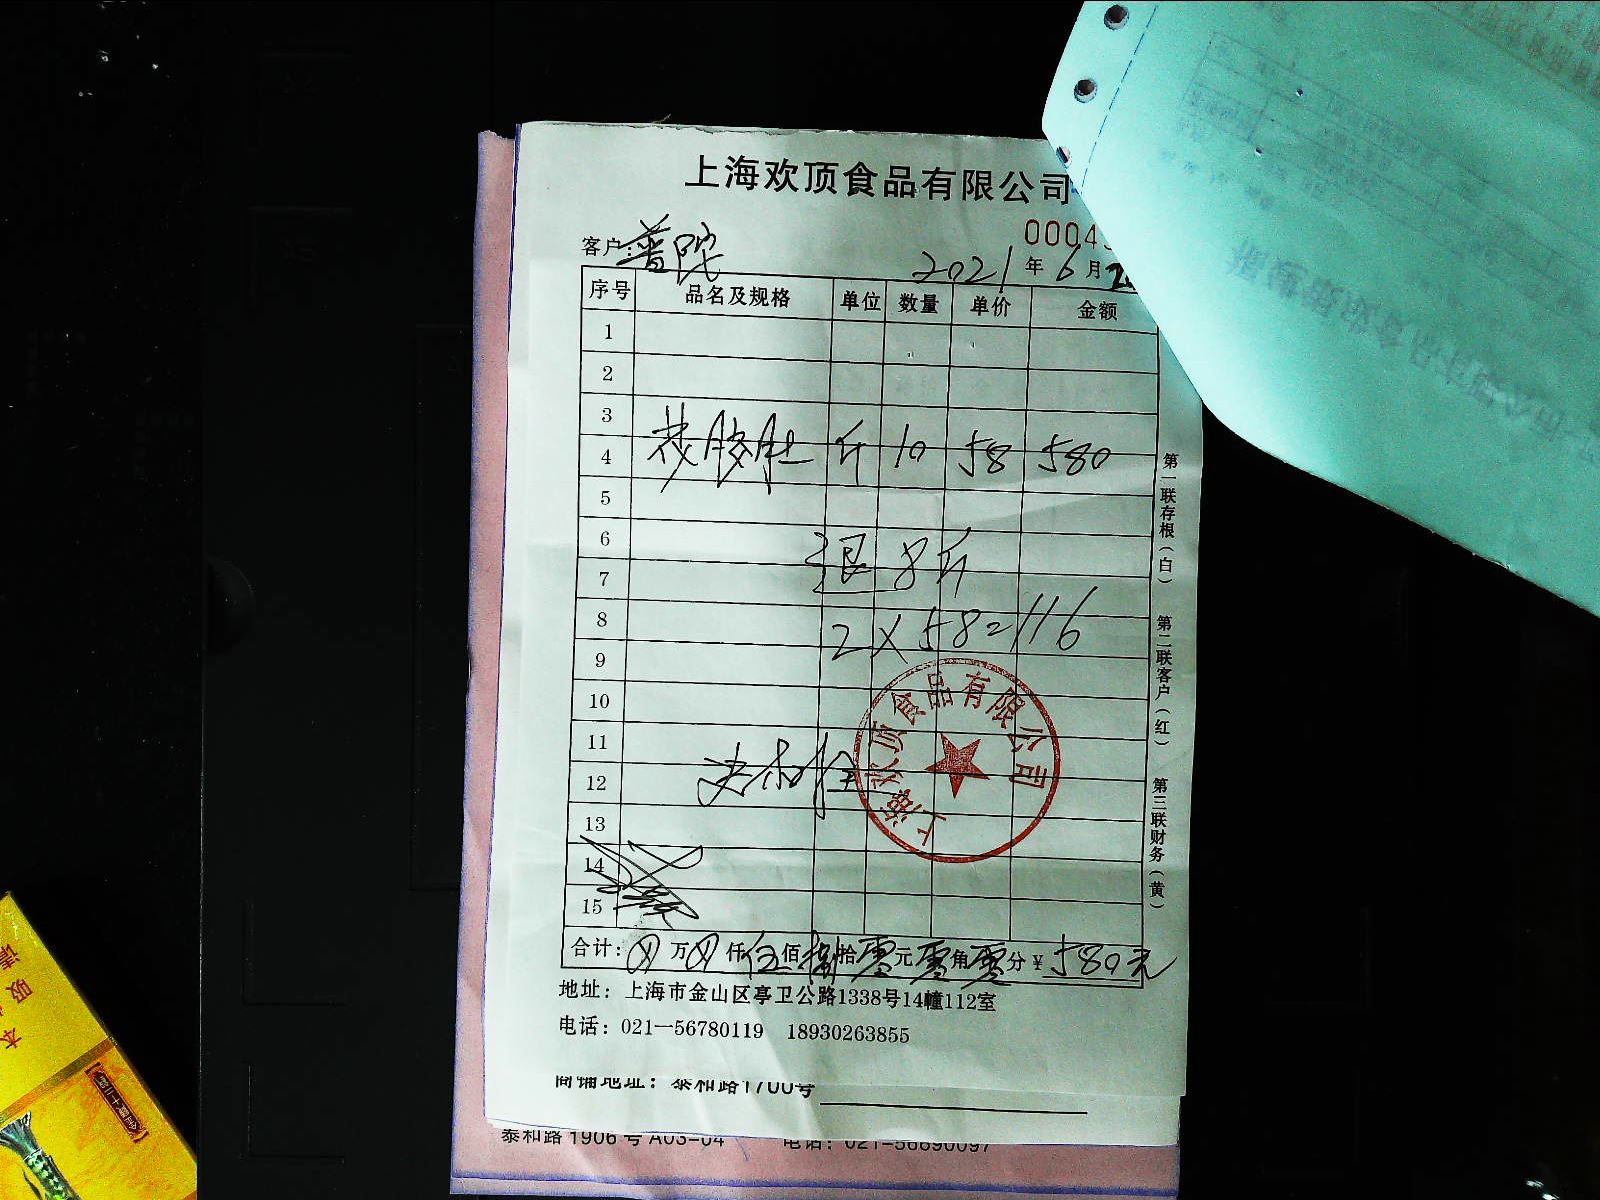 上海欢顶食品有限公司
00045
客户：普陀
2021年6月2
序号 品名及规格 单位 数量 单价 金额
1
2
3
4 花胶肚 斤 10 58 580
5
6
退8斤
7
8
2×58=116
9
10
11
12
13
14
15
上海欢顶食品有限公司
合计：⊗万⊗仟伍佰捌拾零元零角零分¥580元
地址：上海市金山区亭卫公路1338号14幢112室
电话：021—56780119 18930263855
商铺地址：泰和路1700号
泰和路1906号A03-04 电话：021-56890097
第一联存根（白）
第二联客户（红）
第三联财务（黄）